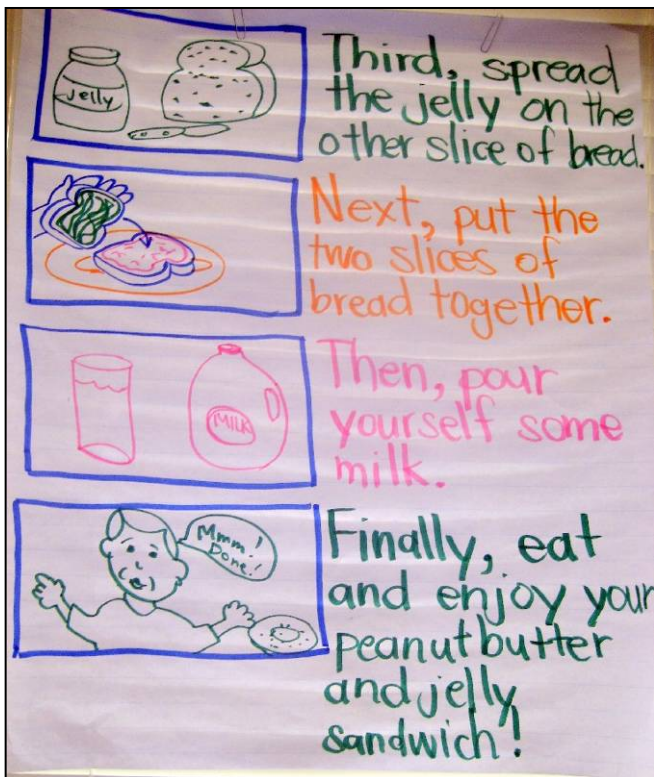 Jelly
Third, spread
the jelly on the
other slice of bread.
Next, put the
two slices of
bread together.
MILK
Then, pour
yourself some
milk.
Mmm!
Done!
Finally, eat
and enjoy your
peanut butter
and jelly
sandwich!